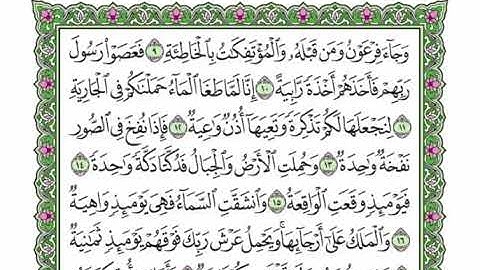 وَجَآءَ فِرۡعَوۡنُ وَمَن قَبۡلَهُۥ وَٱلۡمُؤۡتَفِكَٰتُ بِٱلۡخَاطِئَةِ ٩ فَعَصَوۡاْ رَسُولَ
رَبِّهِمۡ فَأَخَذَهُمۡ أَخۡذَةٗ رَّابِيَةً ١٠ إِنَّا لَمَّا طَغَا ٱلۡمَآءُ حَمَلۡنَٰكُمۡ فِي ٱلۡجَارِيَةِ
١١ لِنَجۡعَلَهَا لَكُمۡ تَذۡكِرَةٗ وَتَعِيَهَآ أُذُنٞ وَٰعِيَةٞ ١٢ فَإِذَا نُفِخَ فِي ٱلصُّورِ
نَفۡخَةٞ وَٰحِدَةٞ ١٣ وَحُمِلَتِ ٱلۡأَرۡضُ وَٱلۡجِبَالُ فَدُكَّتَا دَكَّةٗ وَٰحِدَةٗ ١٤
فَيَوۡمَئِذٖ وَقَعَتِ ٱلۡوَاقِعَةُ ١٥ وَٱنشَقَّتِ ٱلسَّمَآءُ فَهِيَ يَوۡمَئِذٖ وَاهِيَةٞ
١٦ وَٱلۡمَلَكُ عَلَىٰٓ أَرۡجَآئِهَاۚ وَيَحۡمِلُ عَرۡشَ رَبِّكَ فَوۡقَهُمۡ يَوۡمَئِذٖ ثَمَٰنِيَةٞ